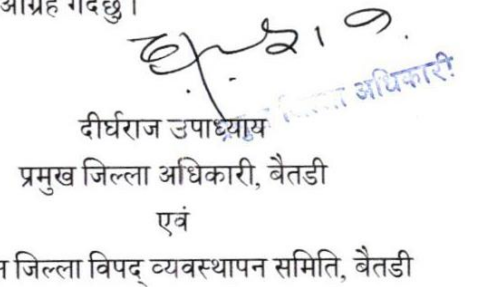 गर्दछु।
प्रमुख जिल्ला अधिकारी
दीर्घराज उपाध्याय
प्रमुख जिल्ला अधिकारी, बैतडी
एवं
जिल्ला विपद् व्यवस्थापन समिति, बैतडी